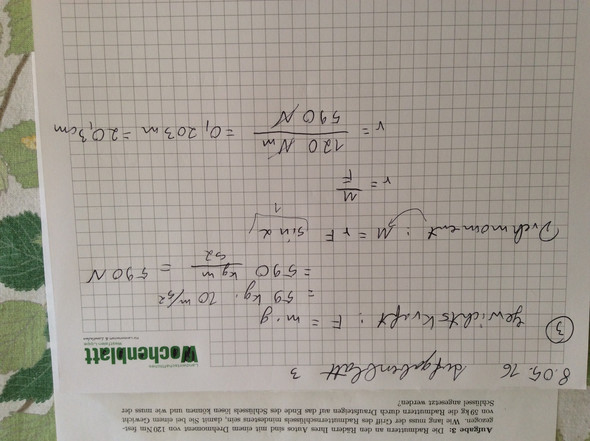 Aufgabe 3: Die Radmuttern an den Rädern Ihres Autos sind mit einem Drehmoment von 120 Nm fest-
gezogen. Wie lang muss der Griff des Radmutterschlüssels mindestens sein, damit Sie bei einem Gewicht
von 59 kg die Radmuttern durch Draufsteigen auf das Ende des Schlüssels lösen können und wie muss der
Schlüssel angesetzt werden?
8.05.16 Aufgabenblatt 3
Wochenblatt
③ Gewichtskraft: F = m·g
= 59 kg · 10 m/s2
= 590 kg m / s2 = 590 N
Drehmoment: M = r F sin α
1
r = M / F
r = 120 Nm / 590 N = 0,203 m = 20,3 cm